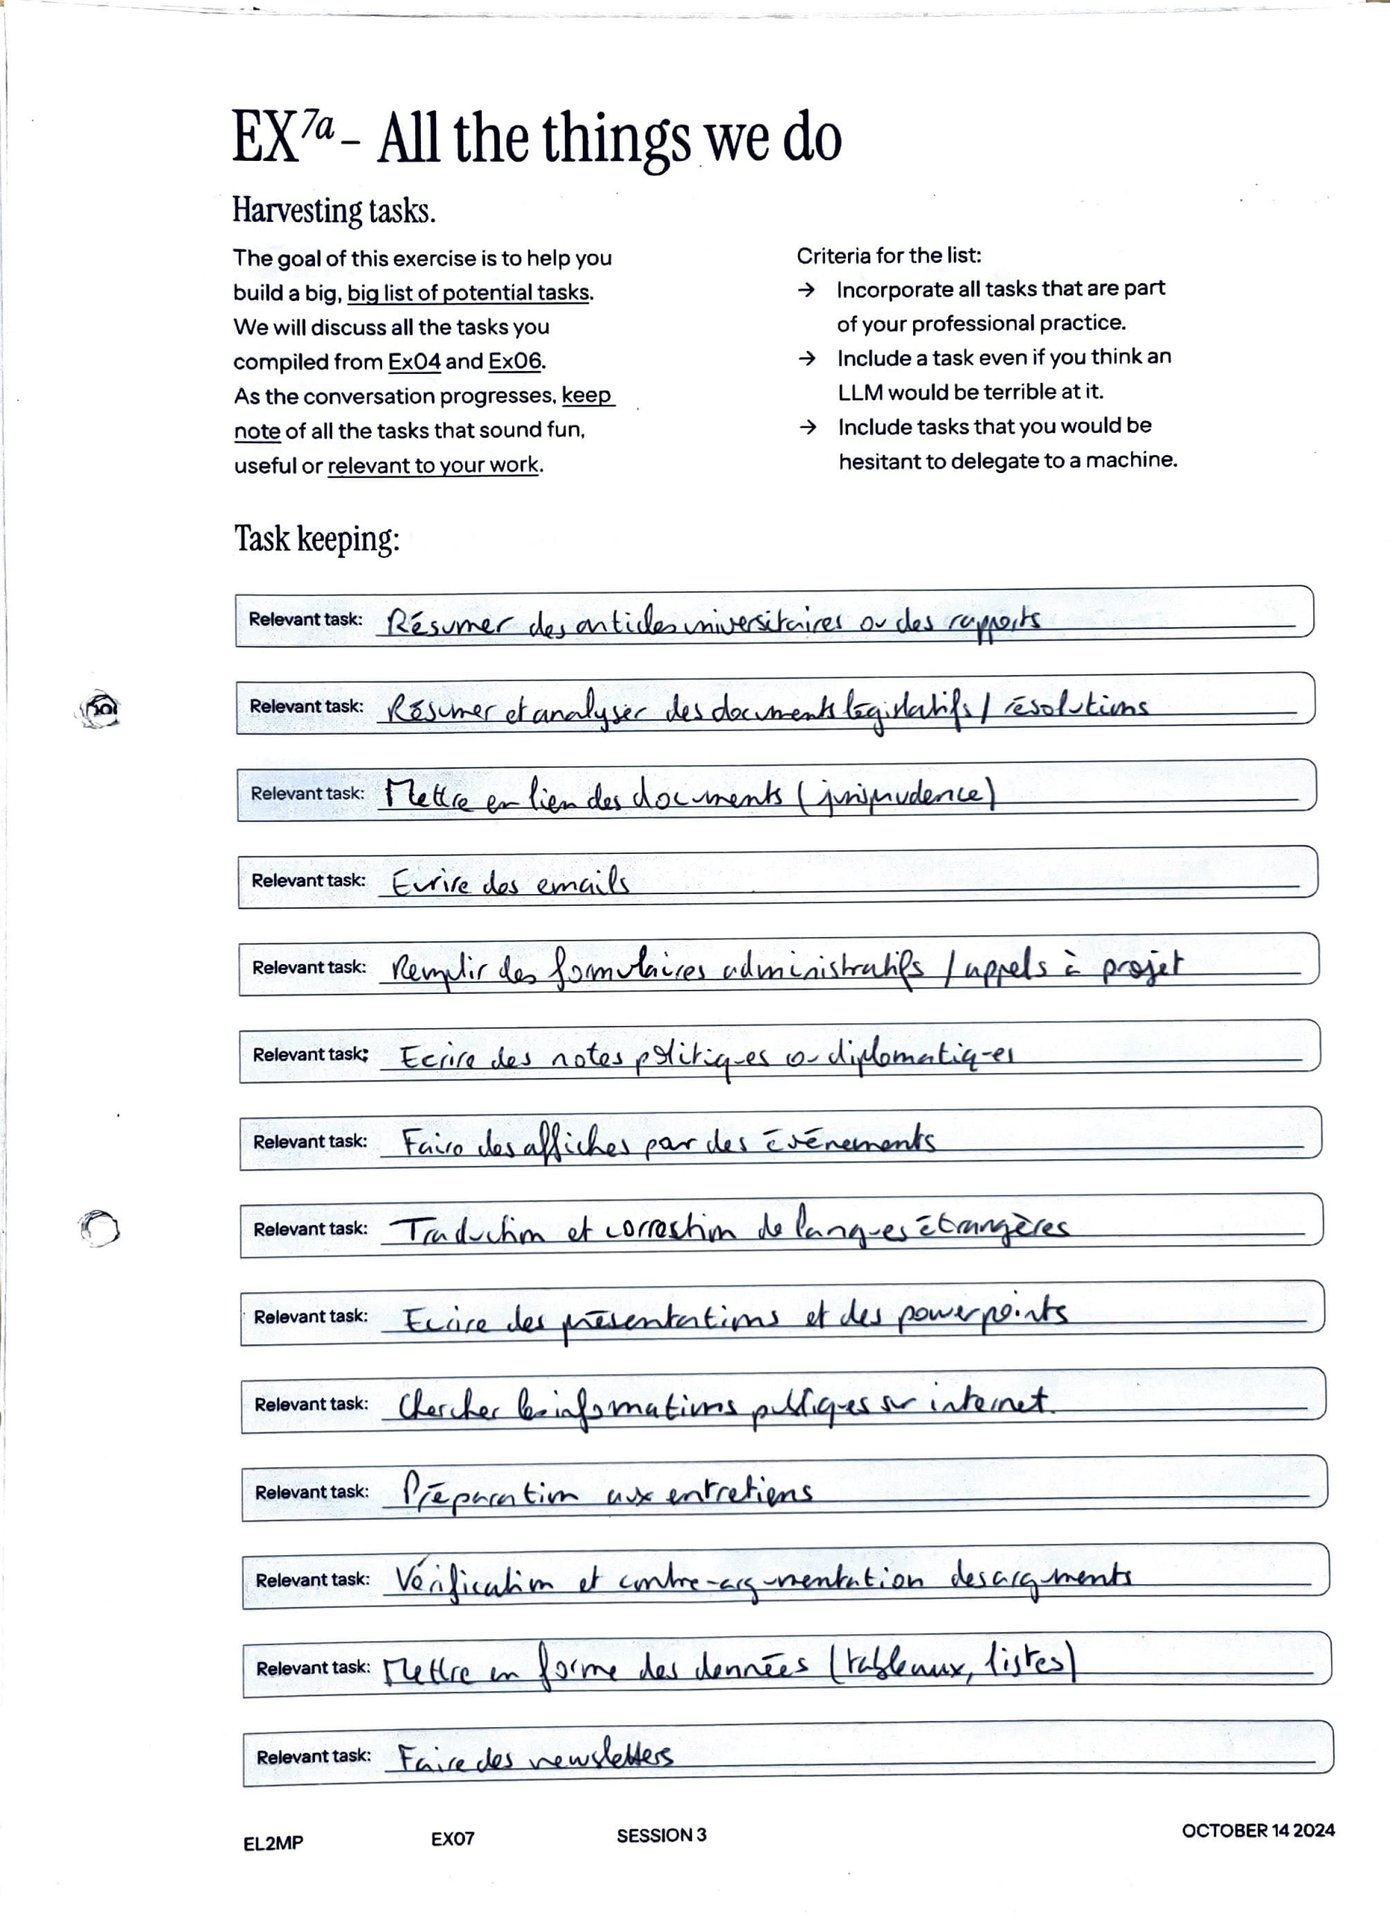 EX7a – All the things we do
Harvesting tasks.
The goal of this exercise is to help you
build a big, big list of potential tasks.
We will discuss all the tasks you
compiled from Ex04 and Ex06.
As the conversation progresses, keep
note of all the tasks that sound fun,
useful or relevant to your work.
Criteria for the list:
→ Incorporate all tasks that are part
of your professional practice.
→ Include a task even if you think an
LLM would be terrible at it.
→ Include tasks that you would be
hesitant to delegate to a machine.
Task keeping:
Relevant task: Résumer des articles universitaires ou des rapports
Relevant task: Résumer et analyser des documents législatifs / résolutions
Relevant task: Mettre en lien des documents (jurisprudence)
Relevant task: Ecrire des emails
Relevant task: Remplir des formulaires administratifs / appels à projet
Relevant task: Ecrire des notes politiques ou diplomatiques
Relevant task: Faire des affiches par des événements
Relevant task: Traduction et correction de langues étrangères
Relevant task: Ecrire des présentations et des powerpoints
Relevant task: Chercher les informations publiques sur internet.
Relevant task: Préparation aux entretiens
Relevant task: Vérification et contre-argumentation des arguments
Relevant task: Mettre en forme des données (tableaux, listes)
Relevant task: Faire des newsletters
EL2MP EX07 SESSION 3 OCTOBER 14 2024